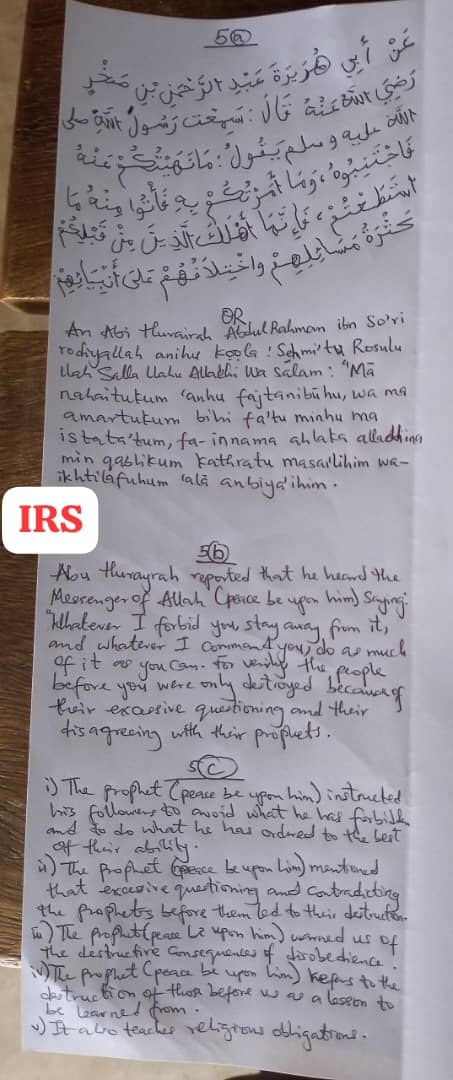 5(a)
عَنْ أَبِي هُرَيْرَةَ عَبْدِ الرَّحْمَنِ بْنِ صَخْرٍ
رَضِيَ اللَّهُ عَنْهُ قَالَ: سَمِعْتُ رَسُولَ اللَّهِ صلى
الله عليه وسلم يَقُولُ: مَا نَهَيْتُكُمْ عَنْهُ
فَاجْتَنِبُوهُ، وَمَا أَمَرْتُكُمْ بِهِ فَأْتُوا مِنْهُ مَا
اسْتَطَعْتُمْ، فَإِنَّمَا أَهْلَكَ الَّذِينَ مِنْ قَبْلِكُمْ
كَثْرَةُ مَسَائِلِهِمْ وَاخْتِلَافُهُمْ عَلَى أَنْبِيَائِهِمْ
OR
An Abi Hurairah Abdul Rahman ibn So'ri
rodiyallah anihu koola: Sehmi'tu Rosulu
llah Salla llahu Allahhi wa Salam: "Mā
nahaitukum 'anhu fajtanibūhu, wa ma
amartukum bihi fa'tu minhu ma
istata'tum, fa-innama ahlaka alladhina
min qablikum kathratu masailihim wa-
ikhtilafuhum 'alā anbiya'ihim.
IRS
5(b)
Abu Hurayrah reported that he heard the
Messenger of Allah (peace be upon him) Saying:
"Whatever I forbid you, stay away from it,
and whatever I command you, do as much
of it as you can. For verily the people
before you were only destroyed because of
their excessive questioning and their
disagreeing with their prophets.
5(c)
i) The prophet (peace be upon him) instructed
his followers to avoid what he has forbidden
and to do what he has ordered to the best
of their ability.
ii) The prophet (peace be upon him) mentioned
that excessive questioning and contradicting
the prophets before them led to their destruction.
iii) The prophet (peace be upon him) warned us of
the destructive consequences of disobedience.
iv) The prophet (peace be upon him) refers to the
destruction of those before us as a lesson to
be learned from.
v) It also teaches religious obligations.